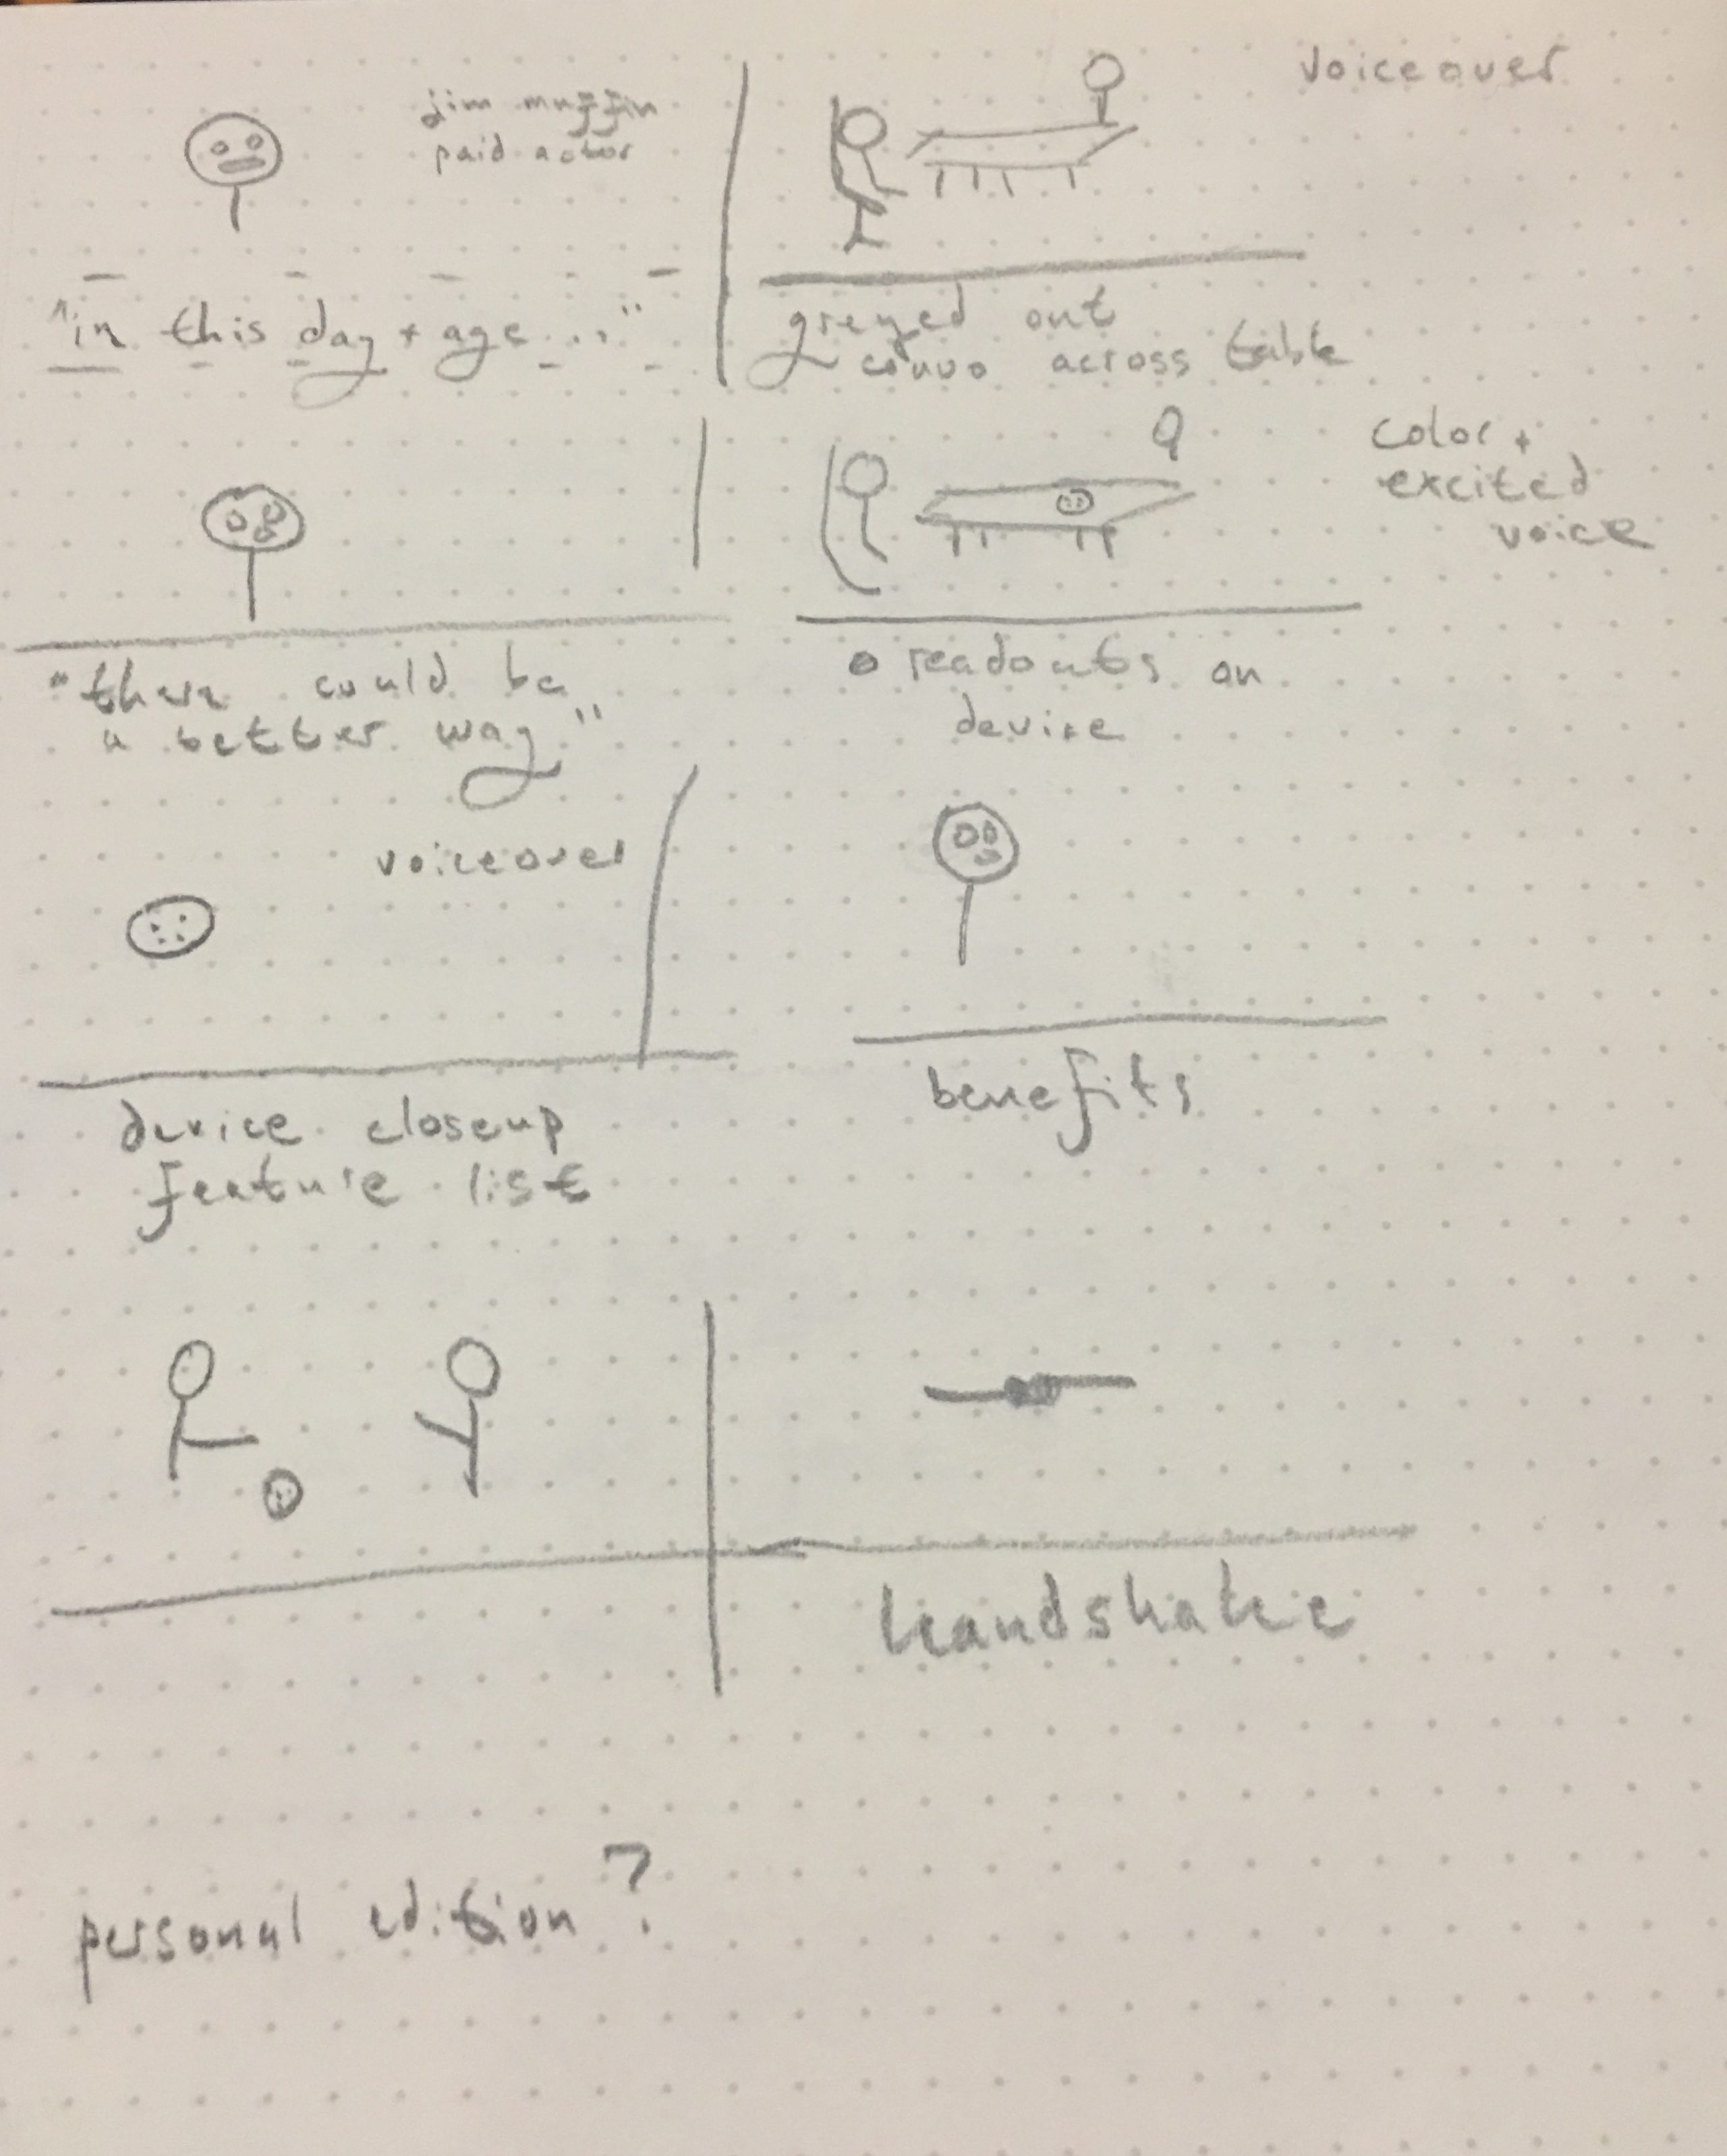 jim muffin
paid actor
"in this day + age..."
voiceover
greyed out
convo across table
"there could be
a better way"
color +
excited
voice
readouts on
device
voiceover
device closeup
feature list
benefits
handshake
personal edition?